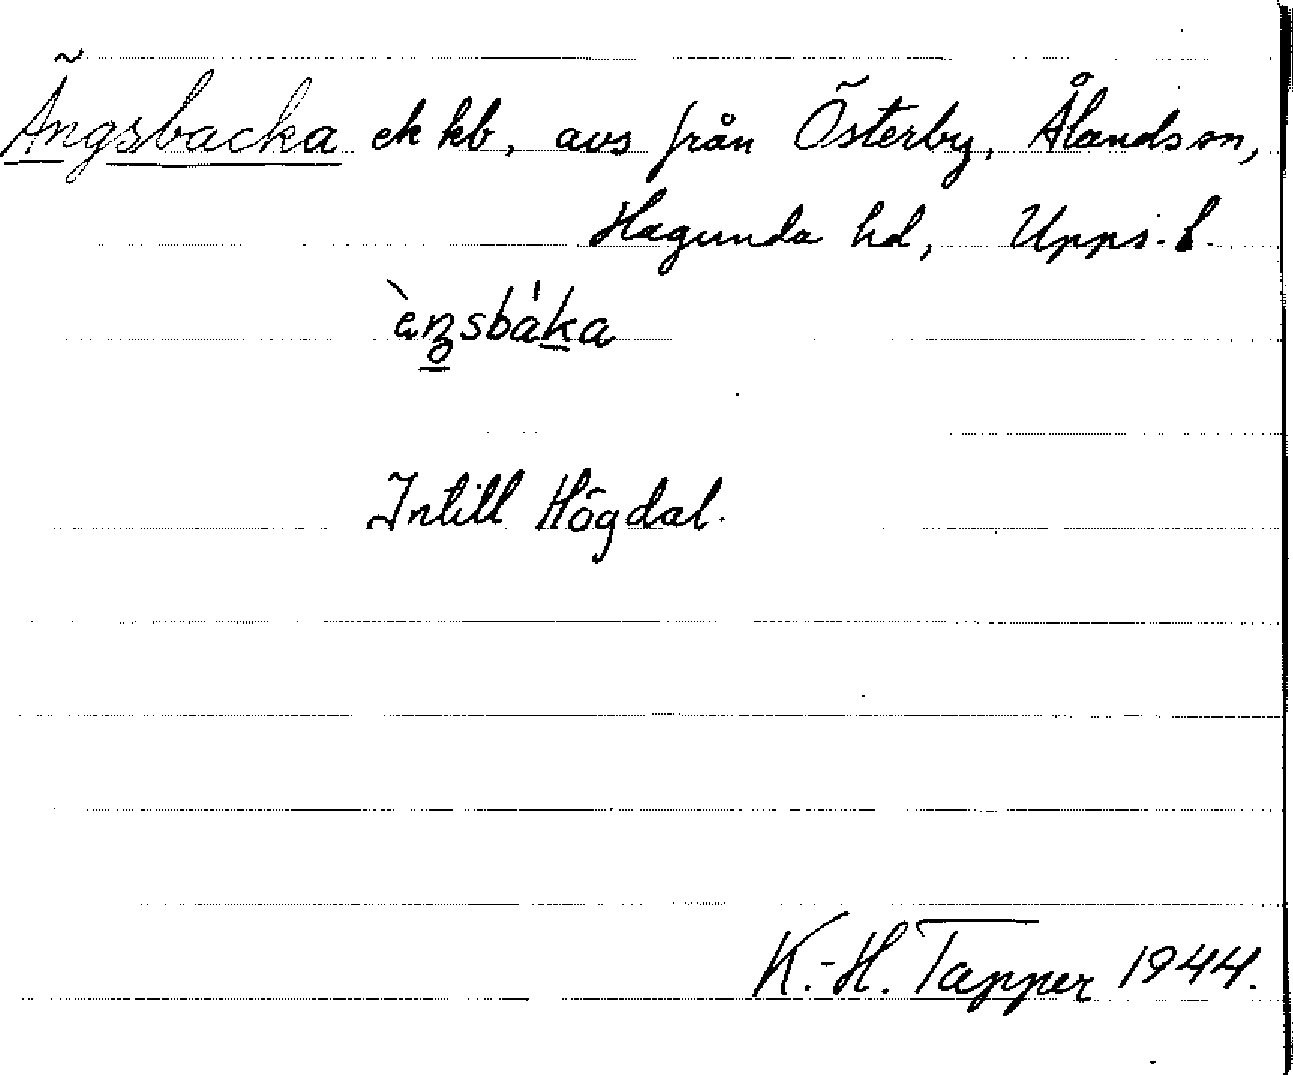 Ängsbacka ek kb, avs från Österby, Ålands sn,
Hagunda hd, Upps. l.
Intill Högdal.
K.-H. Tapper 1944.